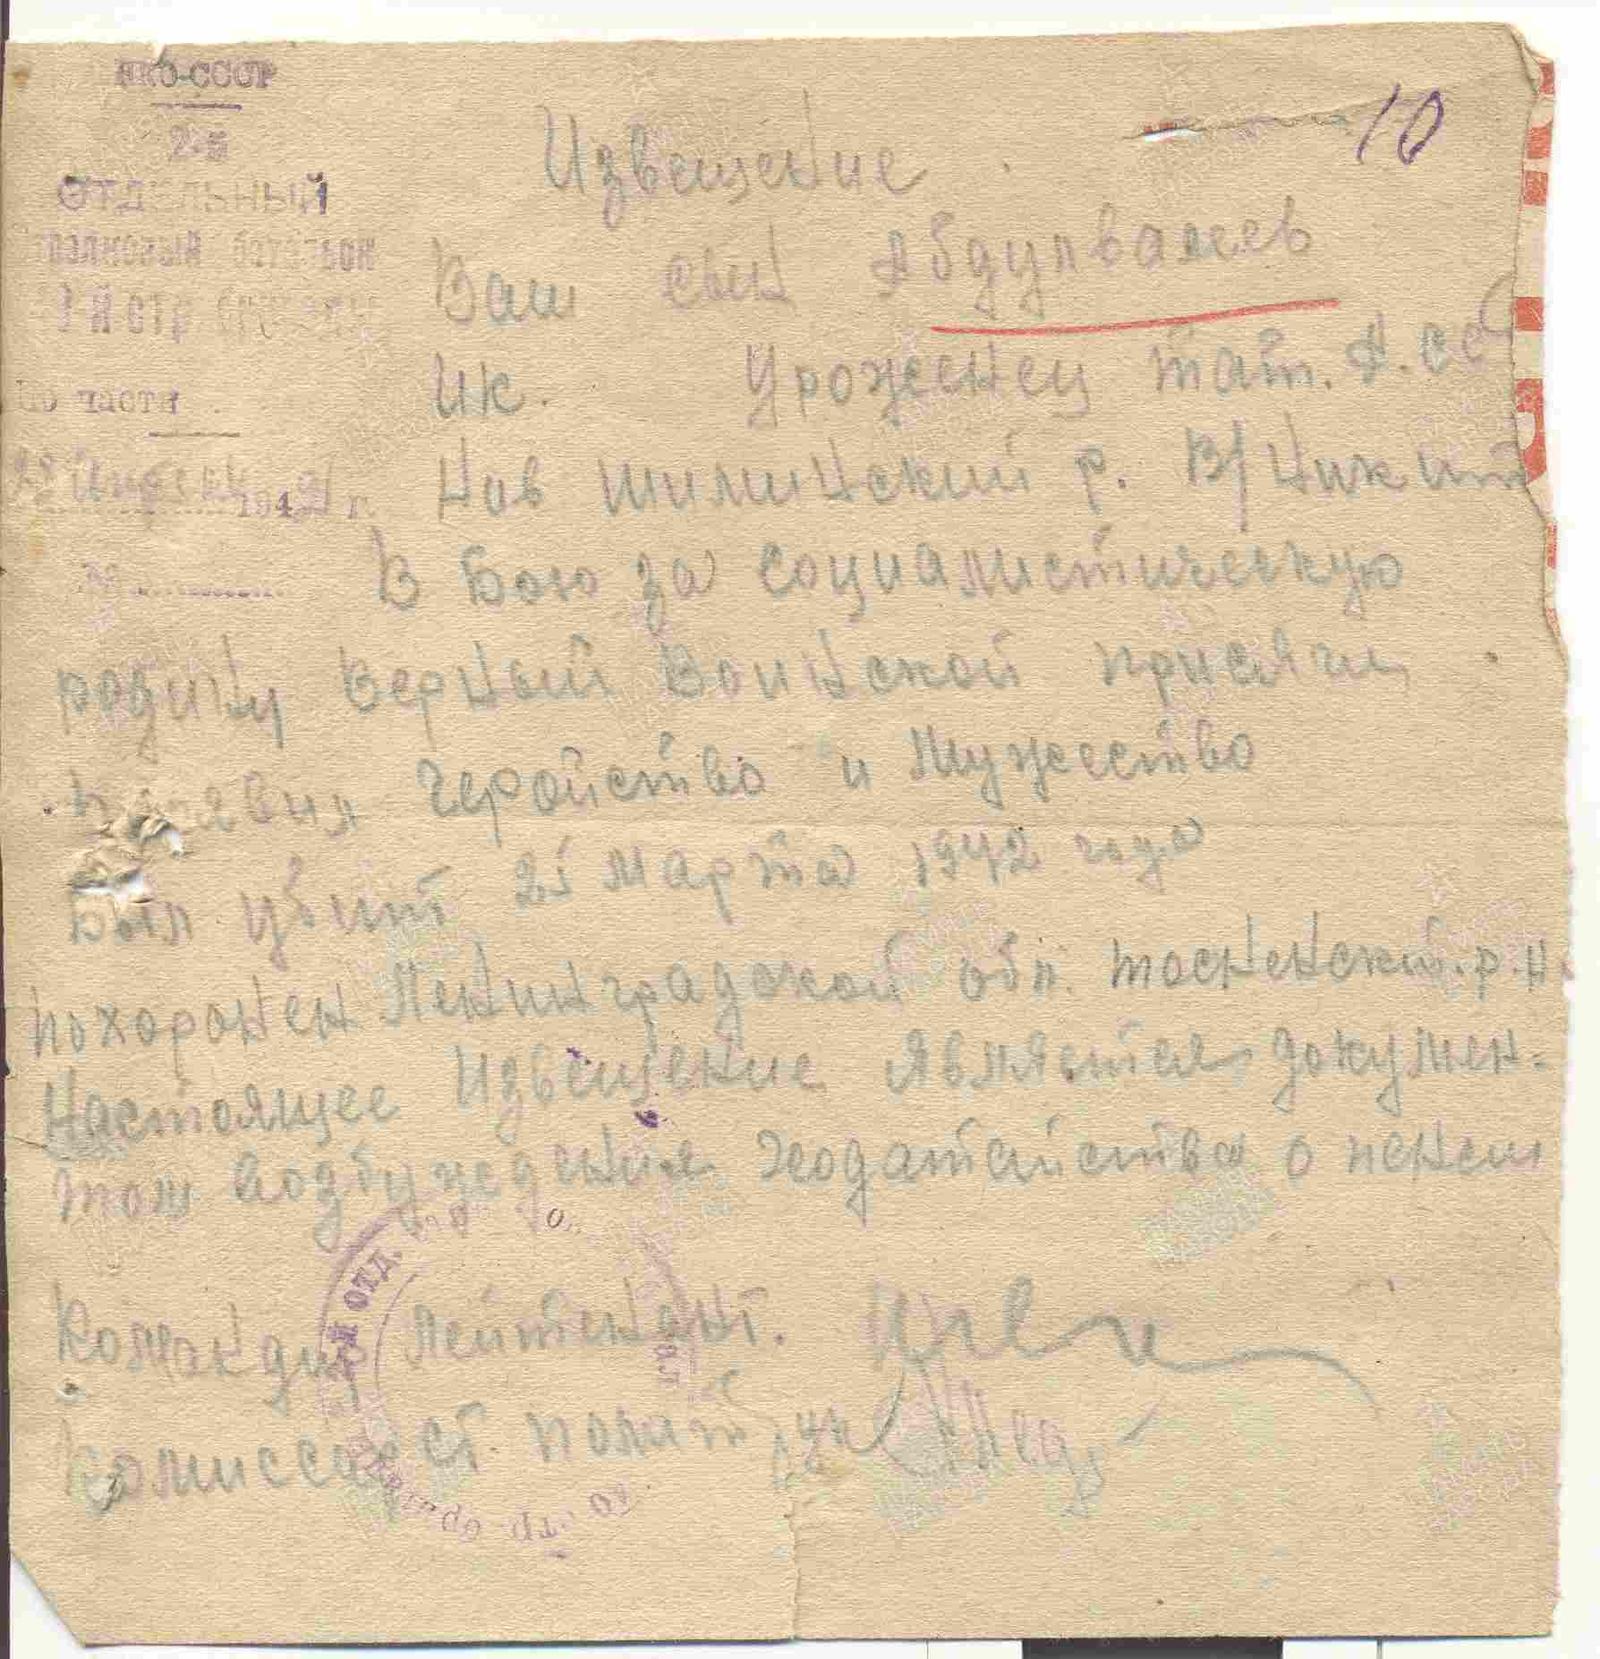 НКО-СССР
2-й
ОТДЕЛЬНЫЙ
батальон
й стр
по части
194 г.
№
10
Извещение
Ваш сын Абдулвалеев
Ик. Уроженец тат. А.сс
Нов Шиминский р. В/
В Бою за социалистическую
родину Верный Воинской присяги
проявил геройство и Мужество
Был убит 25 Марта 1942 года
похоронен Ленинградской обл. Тосненский р.н.
Настоящее Извещение является докумен-
том возбуждения ходатайства о пенси
Командир Лейтенант.
Комиссар ст. политрук
й ОТД.
стр. бригады